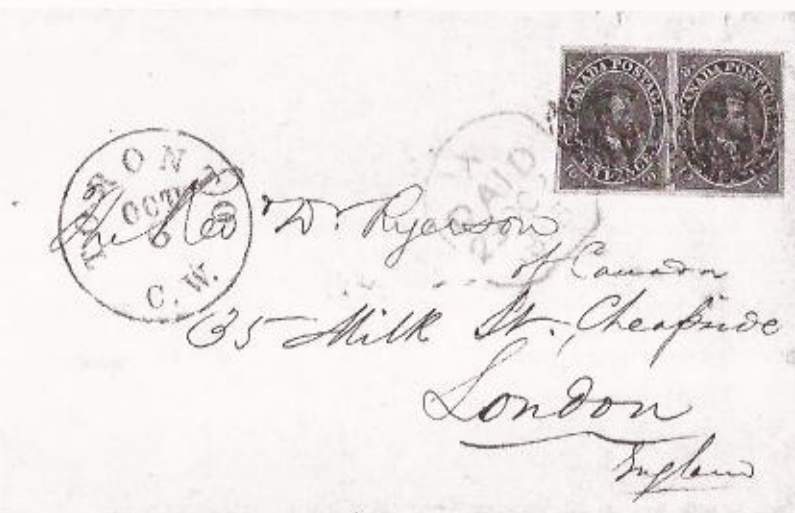 CANADA POSTAGE
CANADA POSTAGE
TORONTO
OCT
6
C. W.
PAID
The Revd Dr. Ryerson
of Canada
35 Milk St., Cheapside
London
England